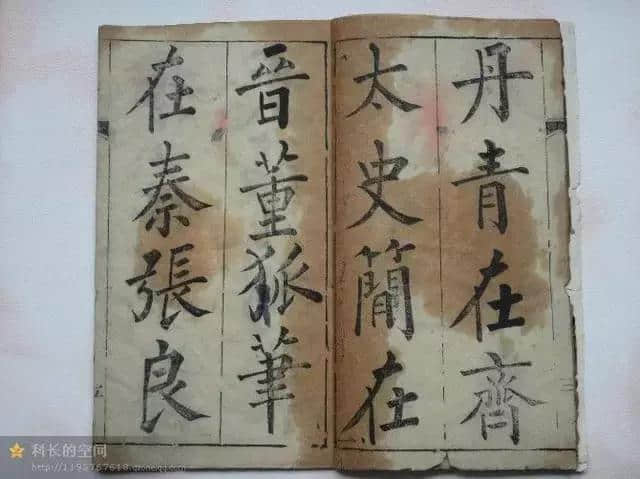 丹青在齊
太史簡在
晉董狐筆
在秦張良
科长的空间